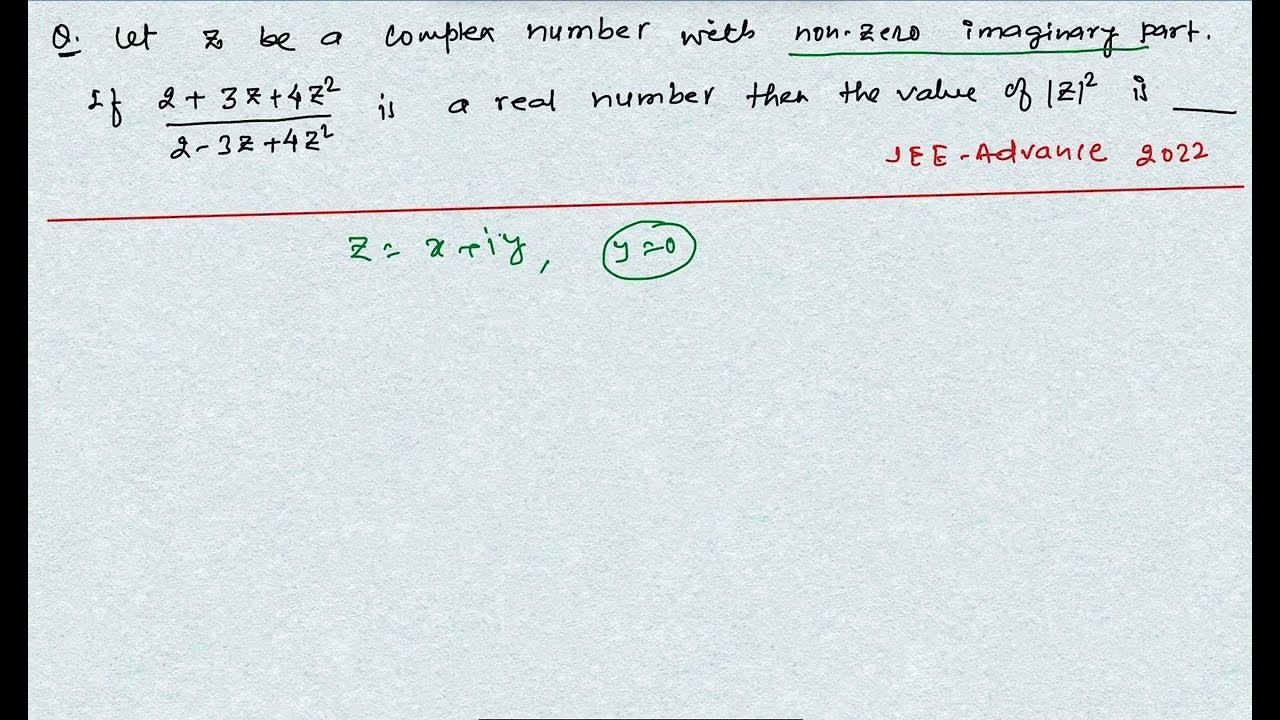 Q. Let z be a complex number with non-zero imaginary part.
If (2 + 3z + 4z²)/(2 - 3z + 4z²) is a real number then the value of |z|² is ___
JEE-Advance 2022
z = x + iy, y = 0